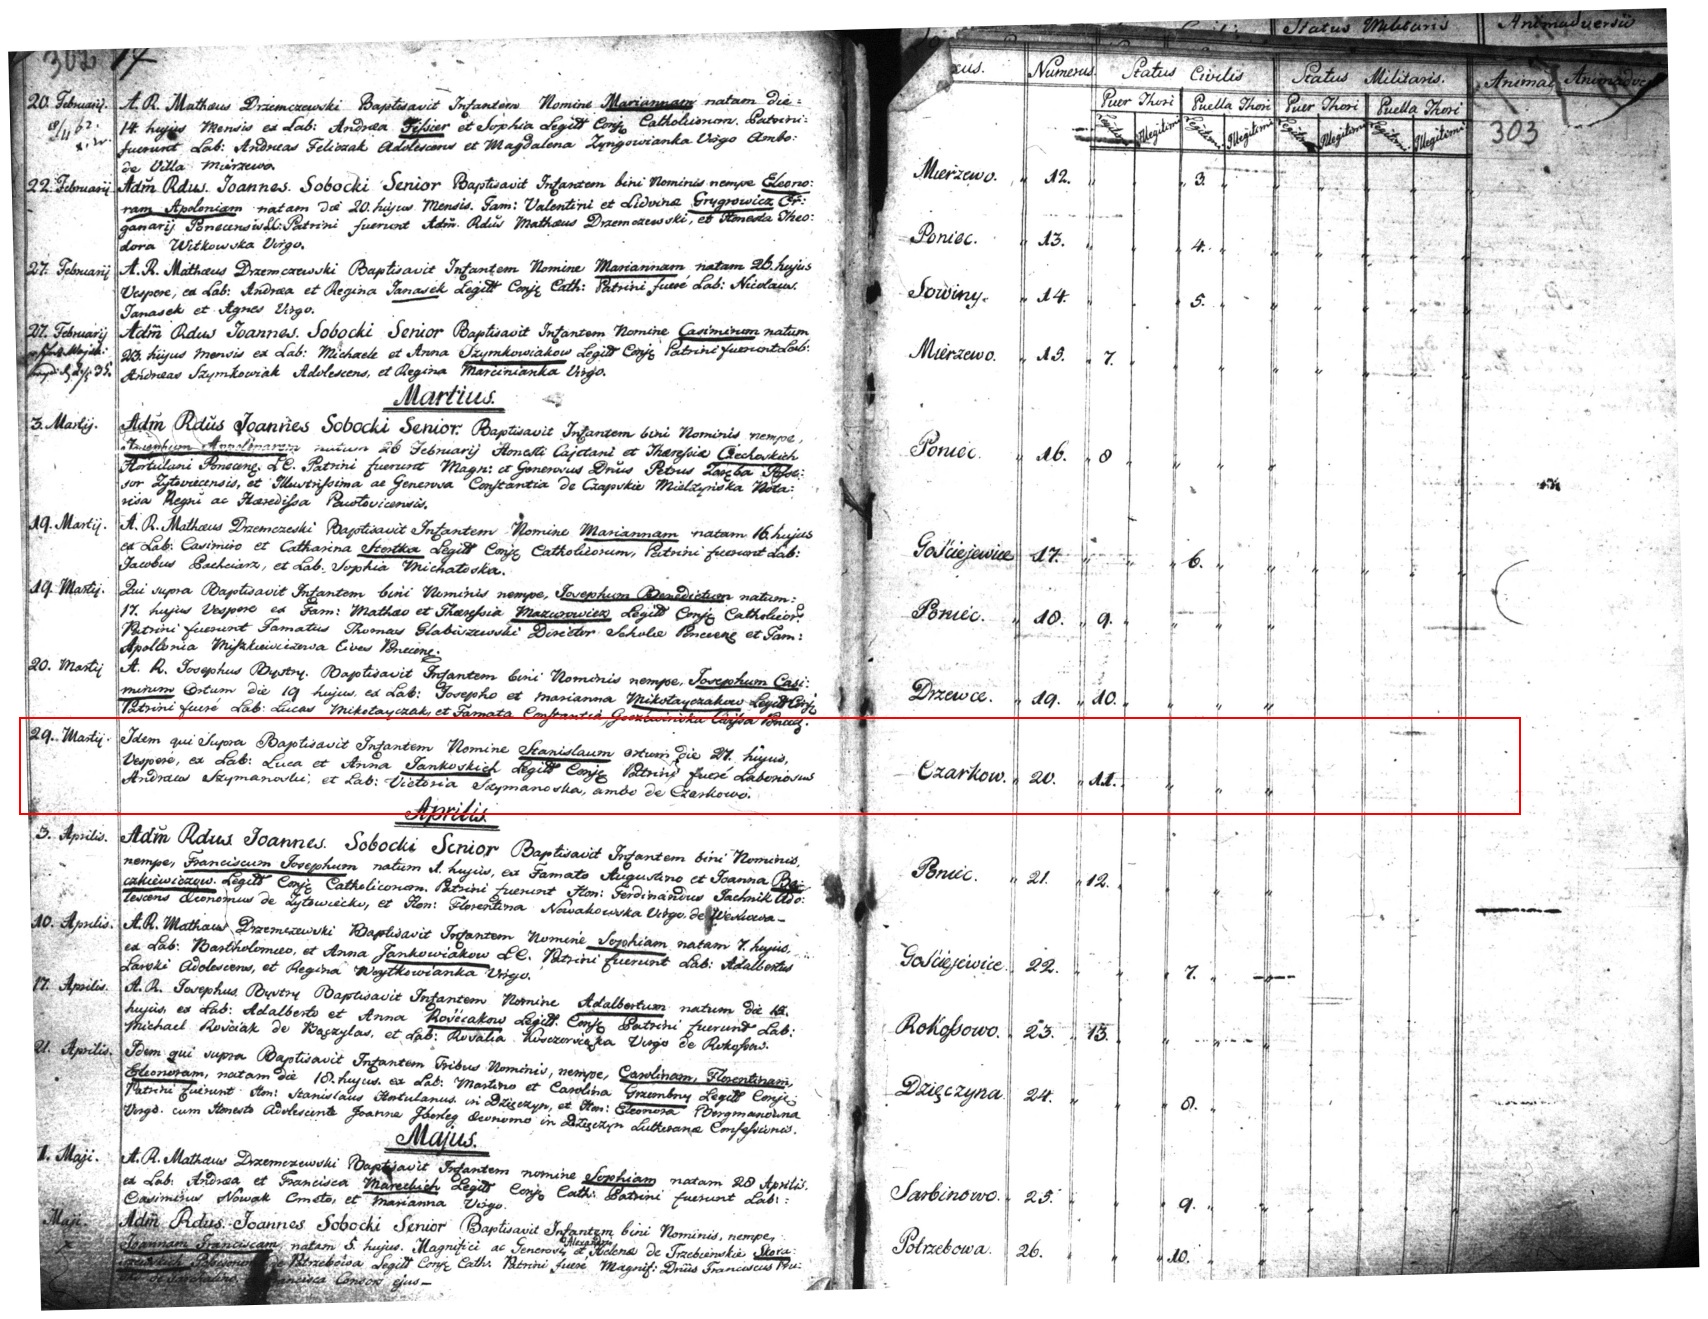 302 17
20. Februarij. A. R. Mathæus Drzemczewski Baptisavit Infantem Nomine Mariannam natam die
14. hujus Mensis ex Lab: Andrea et Sophia Legitt Conj Catholicorum. Patrini
fuerunt Lab: Andreas Feliczak Adolescens et Magdalena Zyngowianka Virgo Ambo
de Villa Mierzewo.
Mierzewo. 12. 3.
22. Februarij Adm̃ Rdus. Joannes. Sobocki Senior Baptisavit Infantem bini Nominis nempe Eleono:
ram Apoloniam natam die 20. hujus Mensis. Fam: Valentini et Ludvinæ Grygrowicz Or:
ganarij Ponecensis LC: Patrini fuerunt Adm̃. Rdus Mathæus Drzemczewski, et Honesta Theo:
dora Witkowska Virgo.
Poniec. 13. 4.
27. Februarij A. R. Mathæus Drzemczewski Baptisavit Infantem Nomine Mariannam natam 26. hujus
Vespere, ex Lab: Andræa et Regina Janasek Legitt Conj Cath: Patrini fueré Lab: Nicolaus
Janasek et Agnes Virgo.
Sowiny. 14. 5.
27. Februarij Adm̃ Rdus Joannes. Sobocki Senior Baptisavit Infantem Nomine Casimirum natum
23. hujus mensis ex Lab: Michaele et Anna Szymkowiakow Legitt Conj Patrini fuerunt Lab:
Andreas Szymkowiak Adolescens, et Regina Marcinianka Virgo.
Mierzewo. 15. 7.
Martius.
3. Martij. Adm̃ Rdus Joannes Sobocki Senior. Baptisavit Infantem bini Nominis nempe,
natum 26 Februarij Honesti Cajetani et Theressia Ciechoskich
Hortulani Ponecene. LC. Patrini fuerunt Magn: et Generosus Dnus Petrus Zaręba Posse:
sor Zytoviecensis, et Illustrissima ac Generosa Constantia de Czapskie Mielzyńska Nota:
risa Regni ac Hæredissa Pawlovicensis.
Poniec. 16. 8
19. Martij. A. R. Mathæus Drzemczeski Baptisavit Infantem Nomine Mariannam natam 16. hujus
ex Lab: Casimiro et Catharina Legitt Conj Catholicorum, Patrini fuerunt Lab:
Jacobus et Lab: Sophia Michatoska.
Gościejewice 17. 6.
19. Martij. Qui supra Baptisavit Infantem bini Nominis nempe, Josephum Benedictum natum
17. hujus Vespere ex Fam: Mathæo et Theressia Mazurowicz Legitt Conj Catholicor
Patrini fuerunt Famatus Thomas Glabiszewski Director Scholæ Ponecene et Fam:
Apollonia Miszkiewiczowa Cives Ponecene.
Poniec. 18. 9.
20. Martij A. R. Josephus Bystry. Baptisavit Infantem bini Nominis nempe, Josephum Casi:
mirum Ortum die 19 hujus. ex Lab: Josepho et Marianna Mikołayczakow Legitt Conj
Patrini fueré Lab: Lucas Mikołayczak, et Famata Constantia
Drzewce. 19. 10.
29. Martij. Idem qui supra Baptisavit Infantem Nomine Stanislaum ortum die 27. hujus,
Vesperé, ex Lab: Luca et Anna Jankoskich Legitt Conj Patrini fueré Laboriosus
Andreas Szymanoski, et Lab: Victoria Szymanoska, ambo de Czarkowo.
Czarkow. 20. 11.
Aprilis.
3. Aprilis. Adm̃ Rdus Joannes. Sobocki Senior Baptisavit Infantem bini Nominis,
nempe, Franciscum Josephum natum 1. hujus, ex Famato Augustino et Joanna
Legitt Conj Catholicorum. Patrini fuerunt Hon: Ferdinandus Jachnik Ado:
lescens Œconomus de et Hon: Florentina Nowakowska Virgo. de
Poniec. 21. 12.
10. Aprilis. A. R. Mathæus Drzemczewski Baptisavit Infantem Nomine Sophiam natam 7. hujus,
ex Lab: Bartholomeo, et Anna Jankowiakow LC. Patrini fuerunt Lab: Adalbertus
Adolescens, et Regina Woytkowianka Virgo.
Gościejewice. 22. 7.
17. Aprilis. A. R. Josephus Bystry Baptisavit Infantem Nomine Adalbertum natum die 15.
hujus, ex Lab: Adalberto et Anna Rościakow Legitt. Conj Patrini fuerunt Lab:
Michael Rościak de et Lab: Rosalia Virgo de Rokossow.
Rokossowo. 23. 13.
21. Aprilis. Idem qui supra Baptisavit Infantem Tribus Nominis, nempe, Carolinam, Florentinam,
Eleonoram, natam die 18. hujus. ex Lab: Martino et Carolina Grzembny Legitt Conj
Patrini fuerunt Hon: Stanislaus Hortulanus in Dzięczyn, et Hon: Eleonora Bergmanowna
Virgo. cum Honesto Adolescente Joanne Œconomo in Dzięczyn Lutheranæ Confessionis.
Dzięczyna 24. 8.
Majus.
1. Maji. A. R. Mathæus Drzemczewski Baptisavit Infantem nomine Sophiam natam 28 Aprilis.
ex Lab: Andræa et Francisca Mareckich Legitt Conj Cath: Patrini fuerunt Lab:
Casimirus Nowak Cmeto, et Marianna Virgo.
Sarbinowo. 25. 9.
Maji. Adm̃ Rdus. Joannes Sobocki Senior Baptisavit Infantem bini Nominis, nempe,
Joannam Franciscam, natam 5. hujus. Magnifici ac Generosi Alexandri et Helena de Trzebinskie
Legitt Conj Cath: Patrini fueré Magnif: Dnus Franciscus
Francisca Consors ejus
Potrzebowa. 26. 10.
Numerus. Status Civilis Status Militaris. Animadver
Puer Thori Puella Thori Puer Thori Puella Thori
Legitimi Illegitimi Legitimi Illegitimi Legitimi Illegitimi Legitimi Illegitimi
303
Status Militaris Animadversio